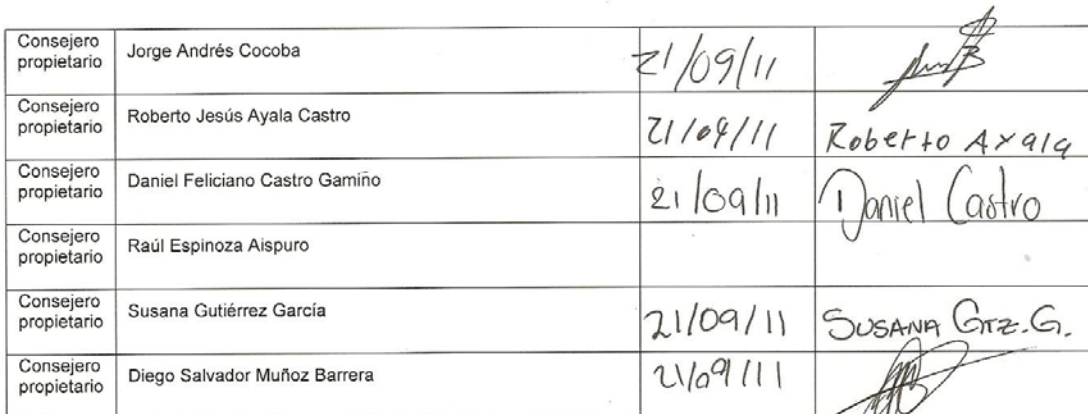 Consejero
propietario
Jorge Andrés Cocoba
21/09/11
Consejero
propietario
Roberto Jesús Ayala Castro
21/09/11
Roberto Ayala
Consejero
propietario
Daniel Feliciano Castro Gamiño
21/09/11
Daniel Castro
Consejero
propietario
Raúl Espinoza Aispuro
Consejero
propietario
Susana Gutiérrez García
21/09/11
SUSANA GTZ. G.
Consejero
propietario
Diego Salvador Muñoz Barrera
21/09/11